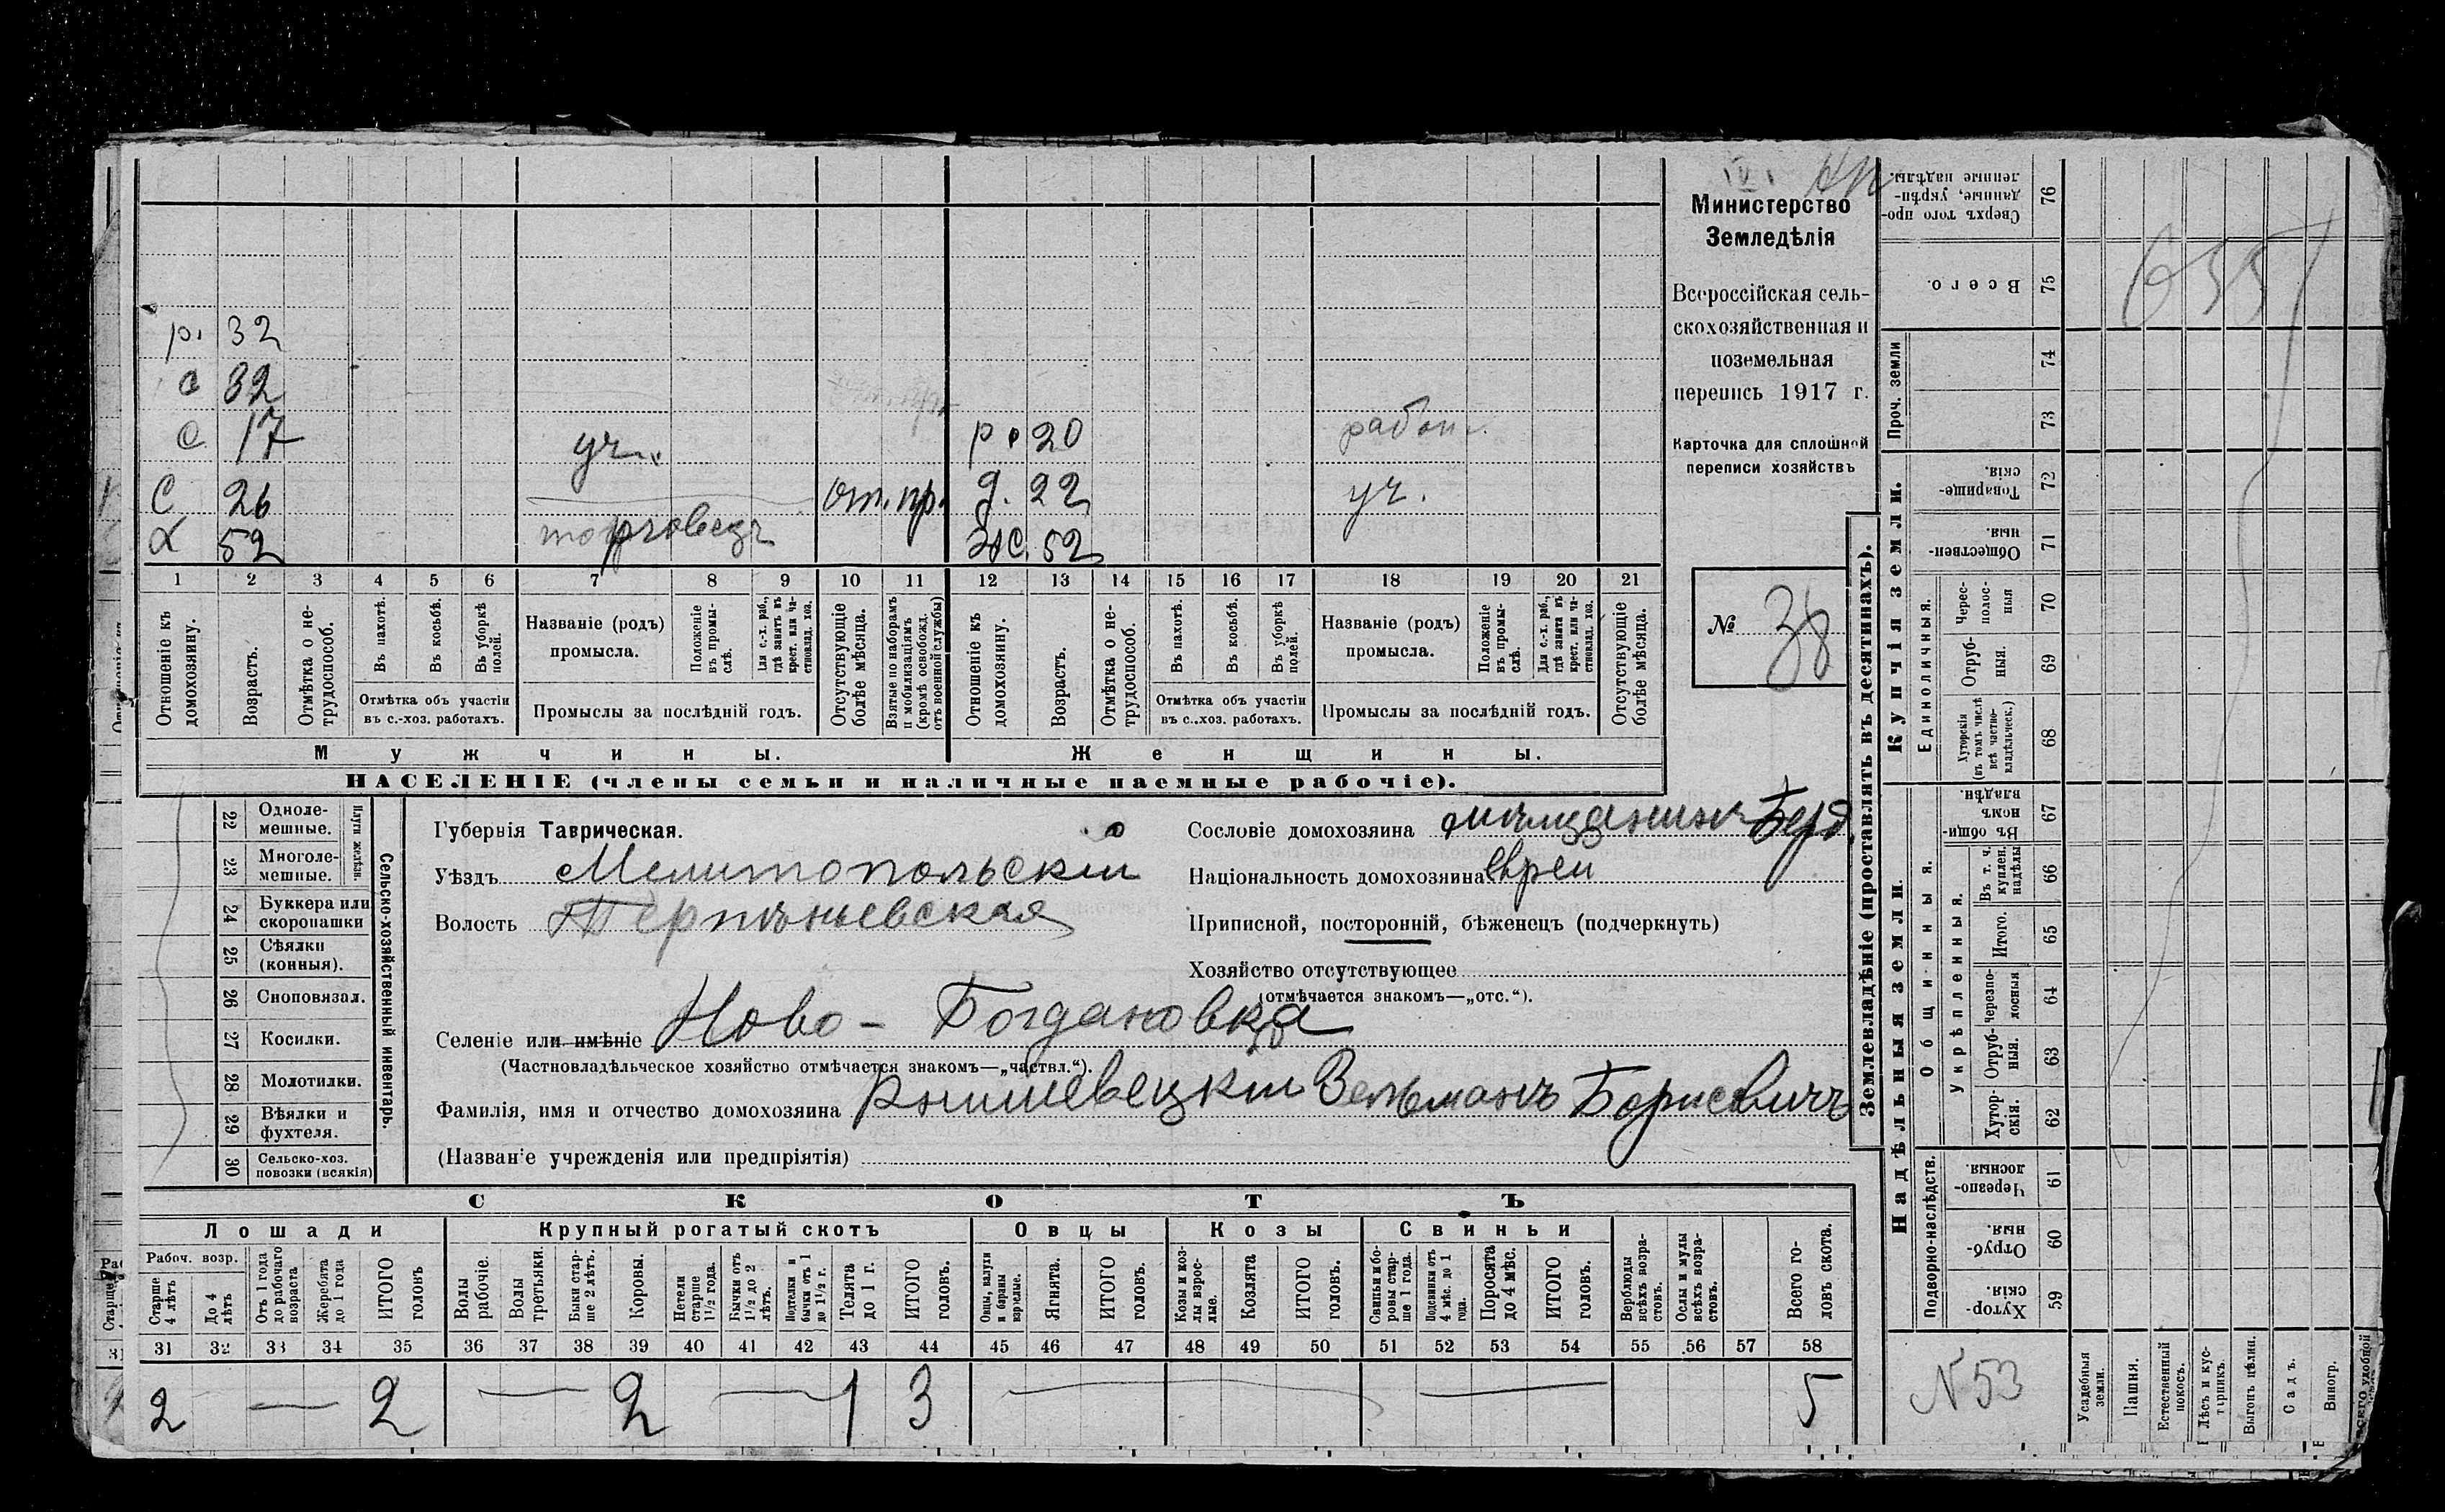 Министерство
Земледѣлія
Всероссійская сель-
скохозяйственная и
поземельная
перепись 1917 г.
Карточка для сплошной
переписи хозяйствъ
№ 38
р. 32
с 32
с 17 уч. р. 20 рабоч.
С 26 от. пр. д. 22 уч.
Х 52 торговецъ Ж. 52
1 2 3 4 5 6 7 8 9 10 11 12 13 14 15 16 17 18 19 20 21
Отношеніе къ домохозяину.
Возрастъ.
Отмѣтка о не-трудоспособ.
Въ пахотѣ.
Въ косьбѣ.
Въ уборкѣ полей.
Отмѣтка объ участіи
въ с.-хоз. работахъ.
Названіе (родъ)
промысла.
Положеніе въ промы-слѣ.
Для с.-х. раб., гдѣ занятъ въ крест. или ча-стновлад. хоз.
Промыслы за послѣдній годъ.
Отсутствующіе болѣе мѣсяца.
Взятые по наборамъ и мобилизаціямъ (кромѣ освобожд. отъ военной службы)
Отношеніе къ домохозяину.
Возрастъ.
Отмѣтка о не-трудоспособ.
Въ пахотѣ.
Въ косьбѣ.
Въ уборкѣ полей.
Отмѣтка объ участіи
въ с..хоз. работахъ.
Названіе (родъ)
промысла.
Положеніе въ промы-слѣ.
Для с.-х. раб., гдѣ занята въ крест. или ча-стновлад. хоз.
Промыслы за послѣдній годъ.
Отсутствующіе болѣе мѣсяца.
Мужчины.
Женщины.
НАСЕЛЕНІЕ (члены семьи и наличные наемные рабочіе).
Сельско-хозяйственный инвентарь.
Плуги желѣзн.
22 Одноле-мешные.
23 Многоле-мешные.
24 Буккера или скоропашки
25 Сѣялки (конныя).
26 Сноповязал.
27 Косилки.
28 Молотилки.
29 Вѣялки и фухтеля.
30 Сельско-хоз. повозки (всякія)
Губернія Таврическая.
Уѣздъ Мелитопольскій
Волость Терпѣньевская
Сословіе домохозяина мѣщанинъ Берд.
Національность домохозяина еврей
Приписной, посторонній, бѣженецъ (подчеркнуть)
Хозяйство отсутствующее
(отмѣчается знакомъ—„отс.“).
Селеніе или имѣніе Ново-Богдановка
(Частновладѣльческое хозяйство отмѣчается знакомъ—„частвл.“).
Фамилія, имя и отчество домохозяина Кнышевецкій Зельманъ Борисовичъ
(Названіе учрежденія или предпріятія)
СКОТЪ
Лошади
Крупный рогатый скотъ
Овцы
Козы
Свиньи
Рабоч. возр.
Старше 4 лѣтъ
До 4 лѣтъ
Отъ 1 года до рабочаго возраста
Жеребята до 1 года
ИТОГО головъ
Волы рабочіе.
Волы третьяки.
Быки стар-ше 2 лѣтъ.
Коровы.
Нетели старше 1½ года.
Бычки отъ 1½ до 2 лѣтъ.
Подтелки и бычки отъ 1 до 1½ г.
Телята до 1 г.
ИТОГО головъ.
Овцы, валухи и бараны взрослые.
Ягнята.
ИТОГО головъ.
Козы и коз-лы взрос-лые.
Козлята
ИТОГО головъ.
Свиньи и бо-ровы стар-ше 1 года.
Подсвинки отъ 4 мѣс. до 1 года.
Поросята до 4 мѣс.
ИТОГО головъ.
Верблюды всѣхъ возра-стовъ.
Ослы и мулы всѣхъ возра-стовъ.
Всего го-ловъ скота.
31 32 33 34 35 36 37 38 39 40 41 42 43 44 45 46 47 48 49 50 51 52 53 54 55 56 57 58
2 2 2 1 3 5
Землевладѣніе (проставлять въ десятинахъ).
Надѣльныя земли.
Купчія земли.
Проч. земли
Подворно-наслѣдств.
Общинныя.
Укрѣпленныя.
Единоличныя.
76 Сверхъ того про-данные, укрѣп-ленные надѣлы.
75 Всего.
74
73
72 Товарище-скія.
71 Обществен-ныя.
70 Черес-полос-ныя
69 Отруб-ныя.
68 Хуторскія (въ томъ числѣ всѣ частно-владѣльческ.)
67 Въ общин-номъ владѣн.
66 Въ т. ч. куплен. надѣлы
65 Итого.
64 Черезпо-лосныя
63 Отруб-ныя.
62 Хутор-скія.
61 Черезпо-лосныя.
60 Отруб-ныя.
59 Хутор-скія.
N 53
Усадебныя земли.
Пашня.
Естественный покосъ.
Лѣсъ и кус-тарникъ.
Выгонъ цѣлин.
Садъ.
Виногр.